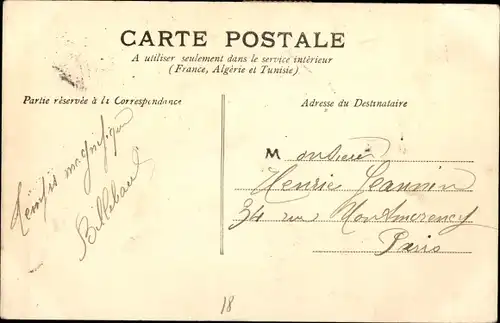 CARTE POSTALE
A utiliser seulement dans le service intérieur
(France, Algérie et Tunisie)
Partie réservée à la Correspondance
Adresse du Destinataire
magnifique
Monsieur
Henrie Jeannin
34 rue Montmorency
Paris
18